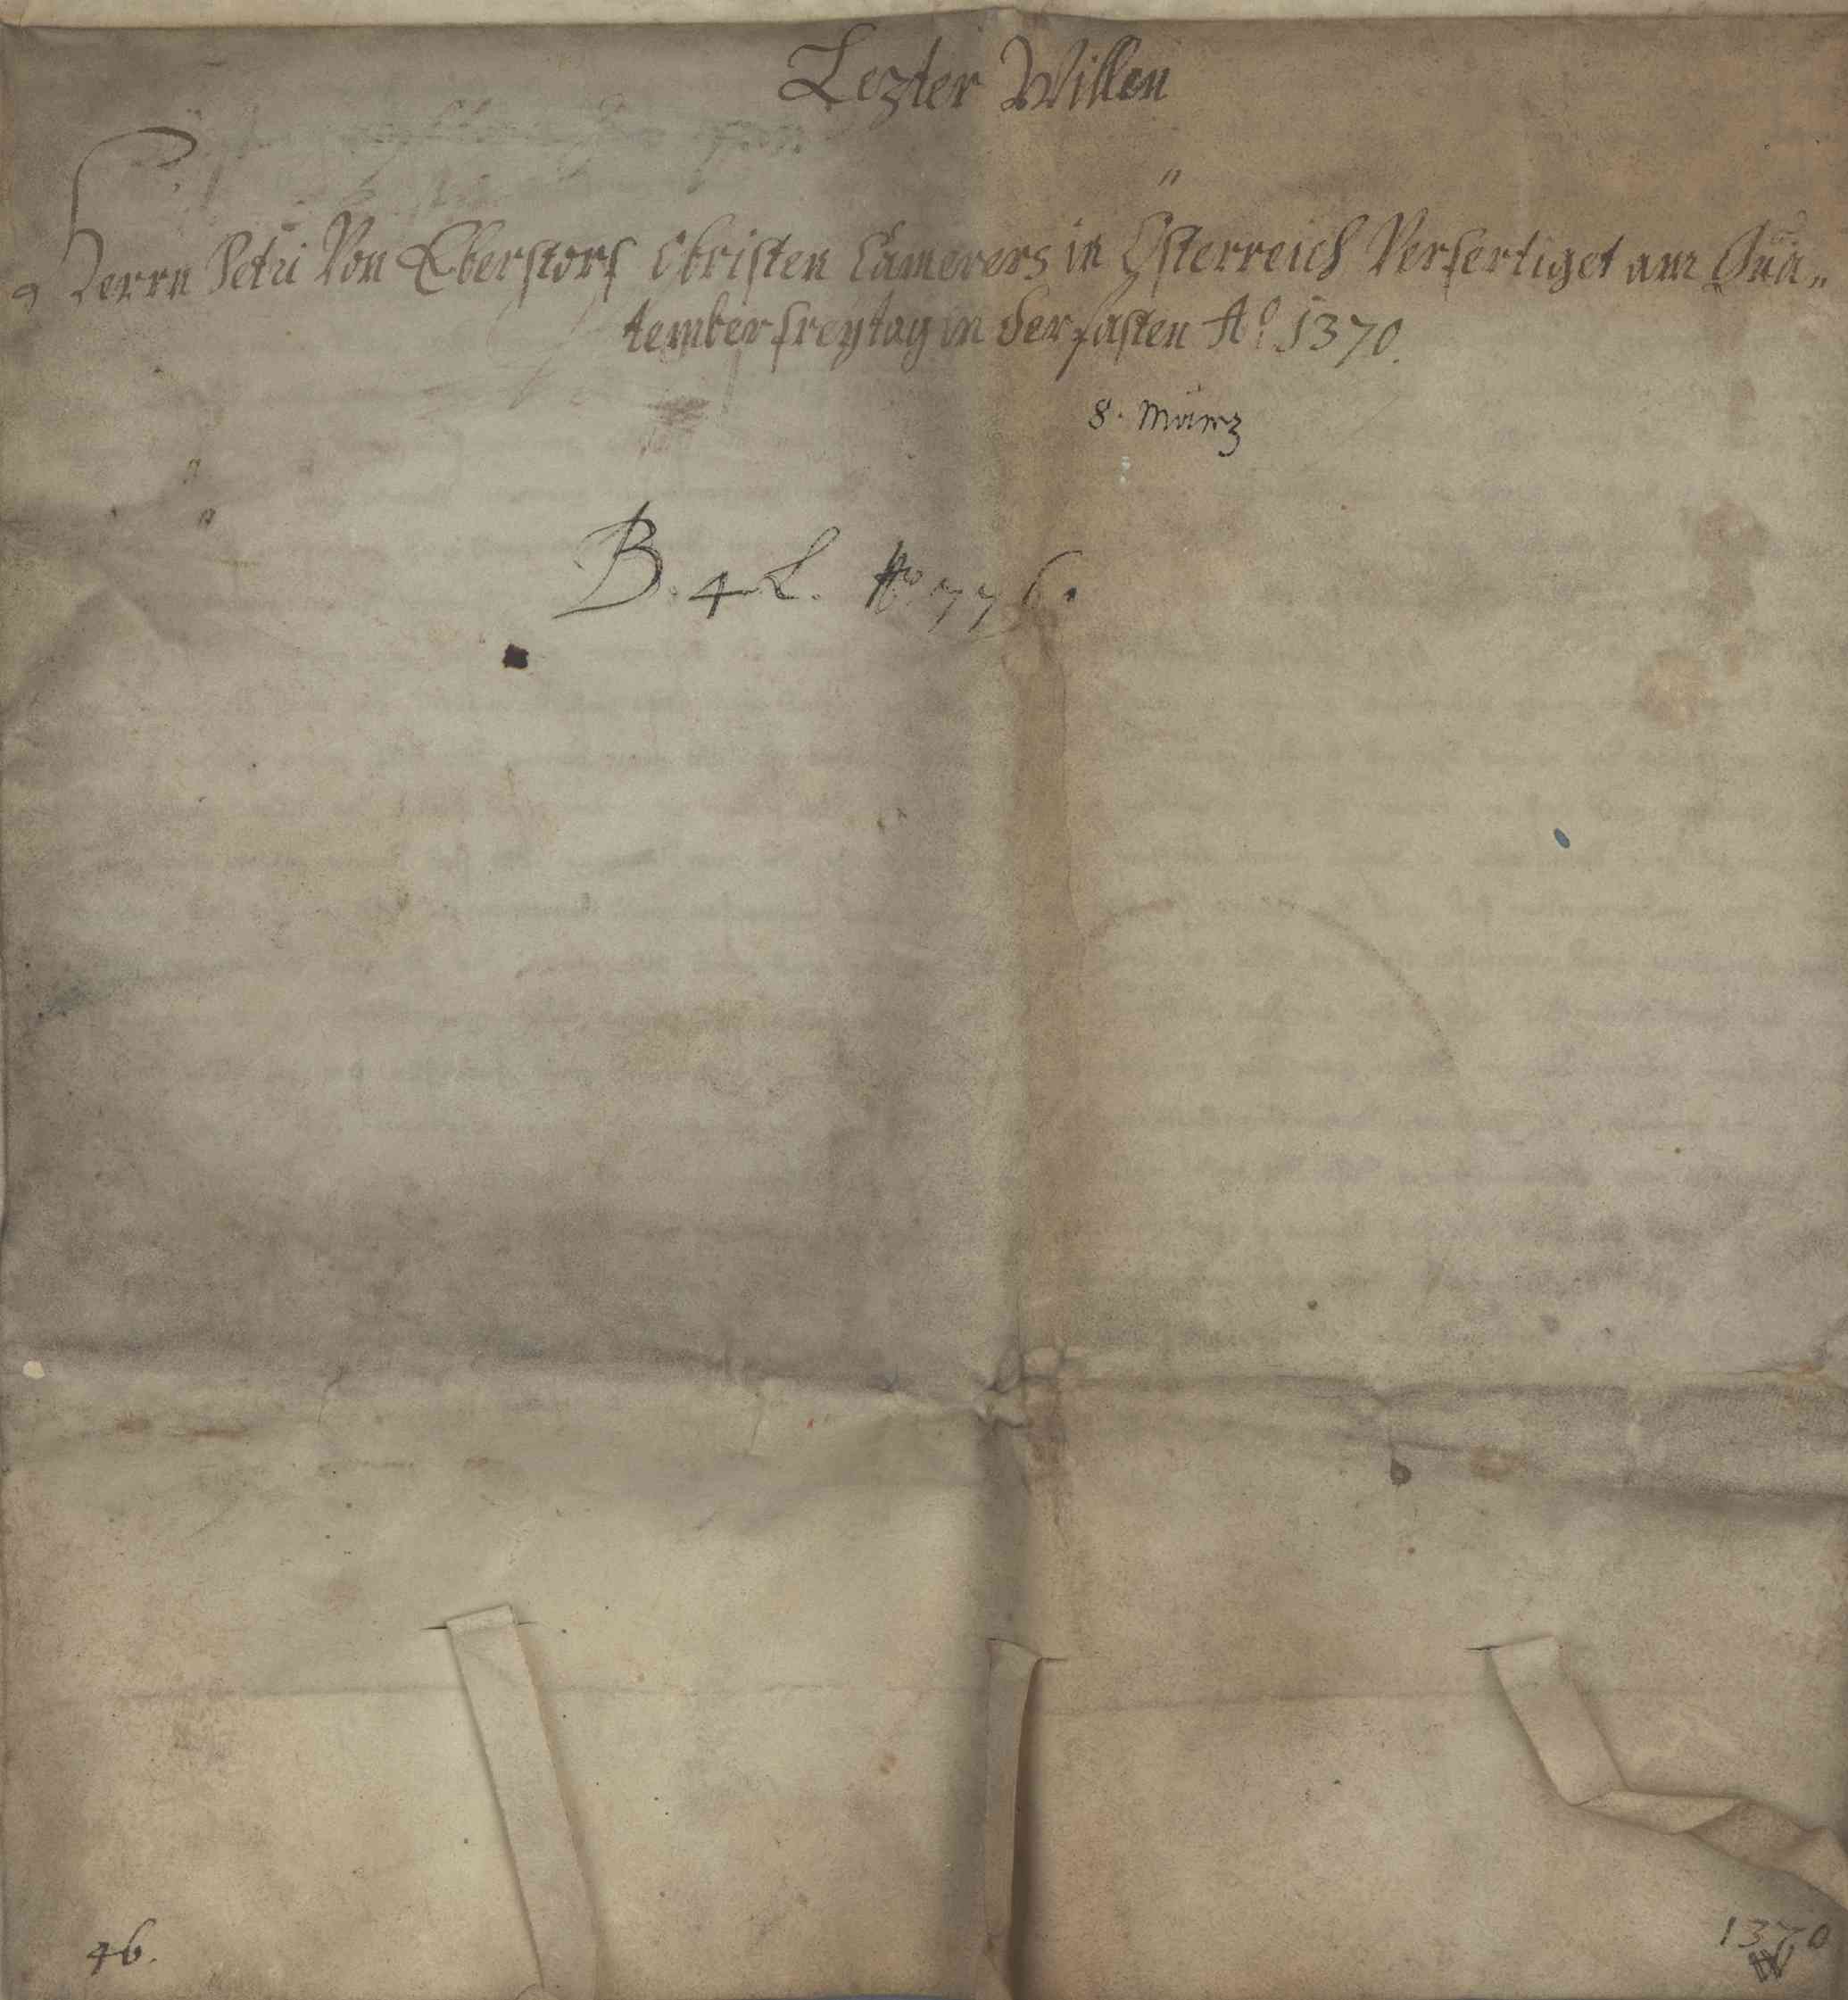 Lezter Willen
Herrn Petri Von Eberstorf Obristen Camerers in Österreich Verfertiget am Qua„
tember freÿtag in der fasten Aͦ 1370.
8. März
B. 4. L. 776.
46.
1370